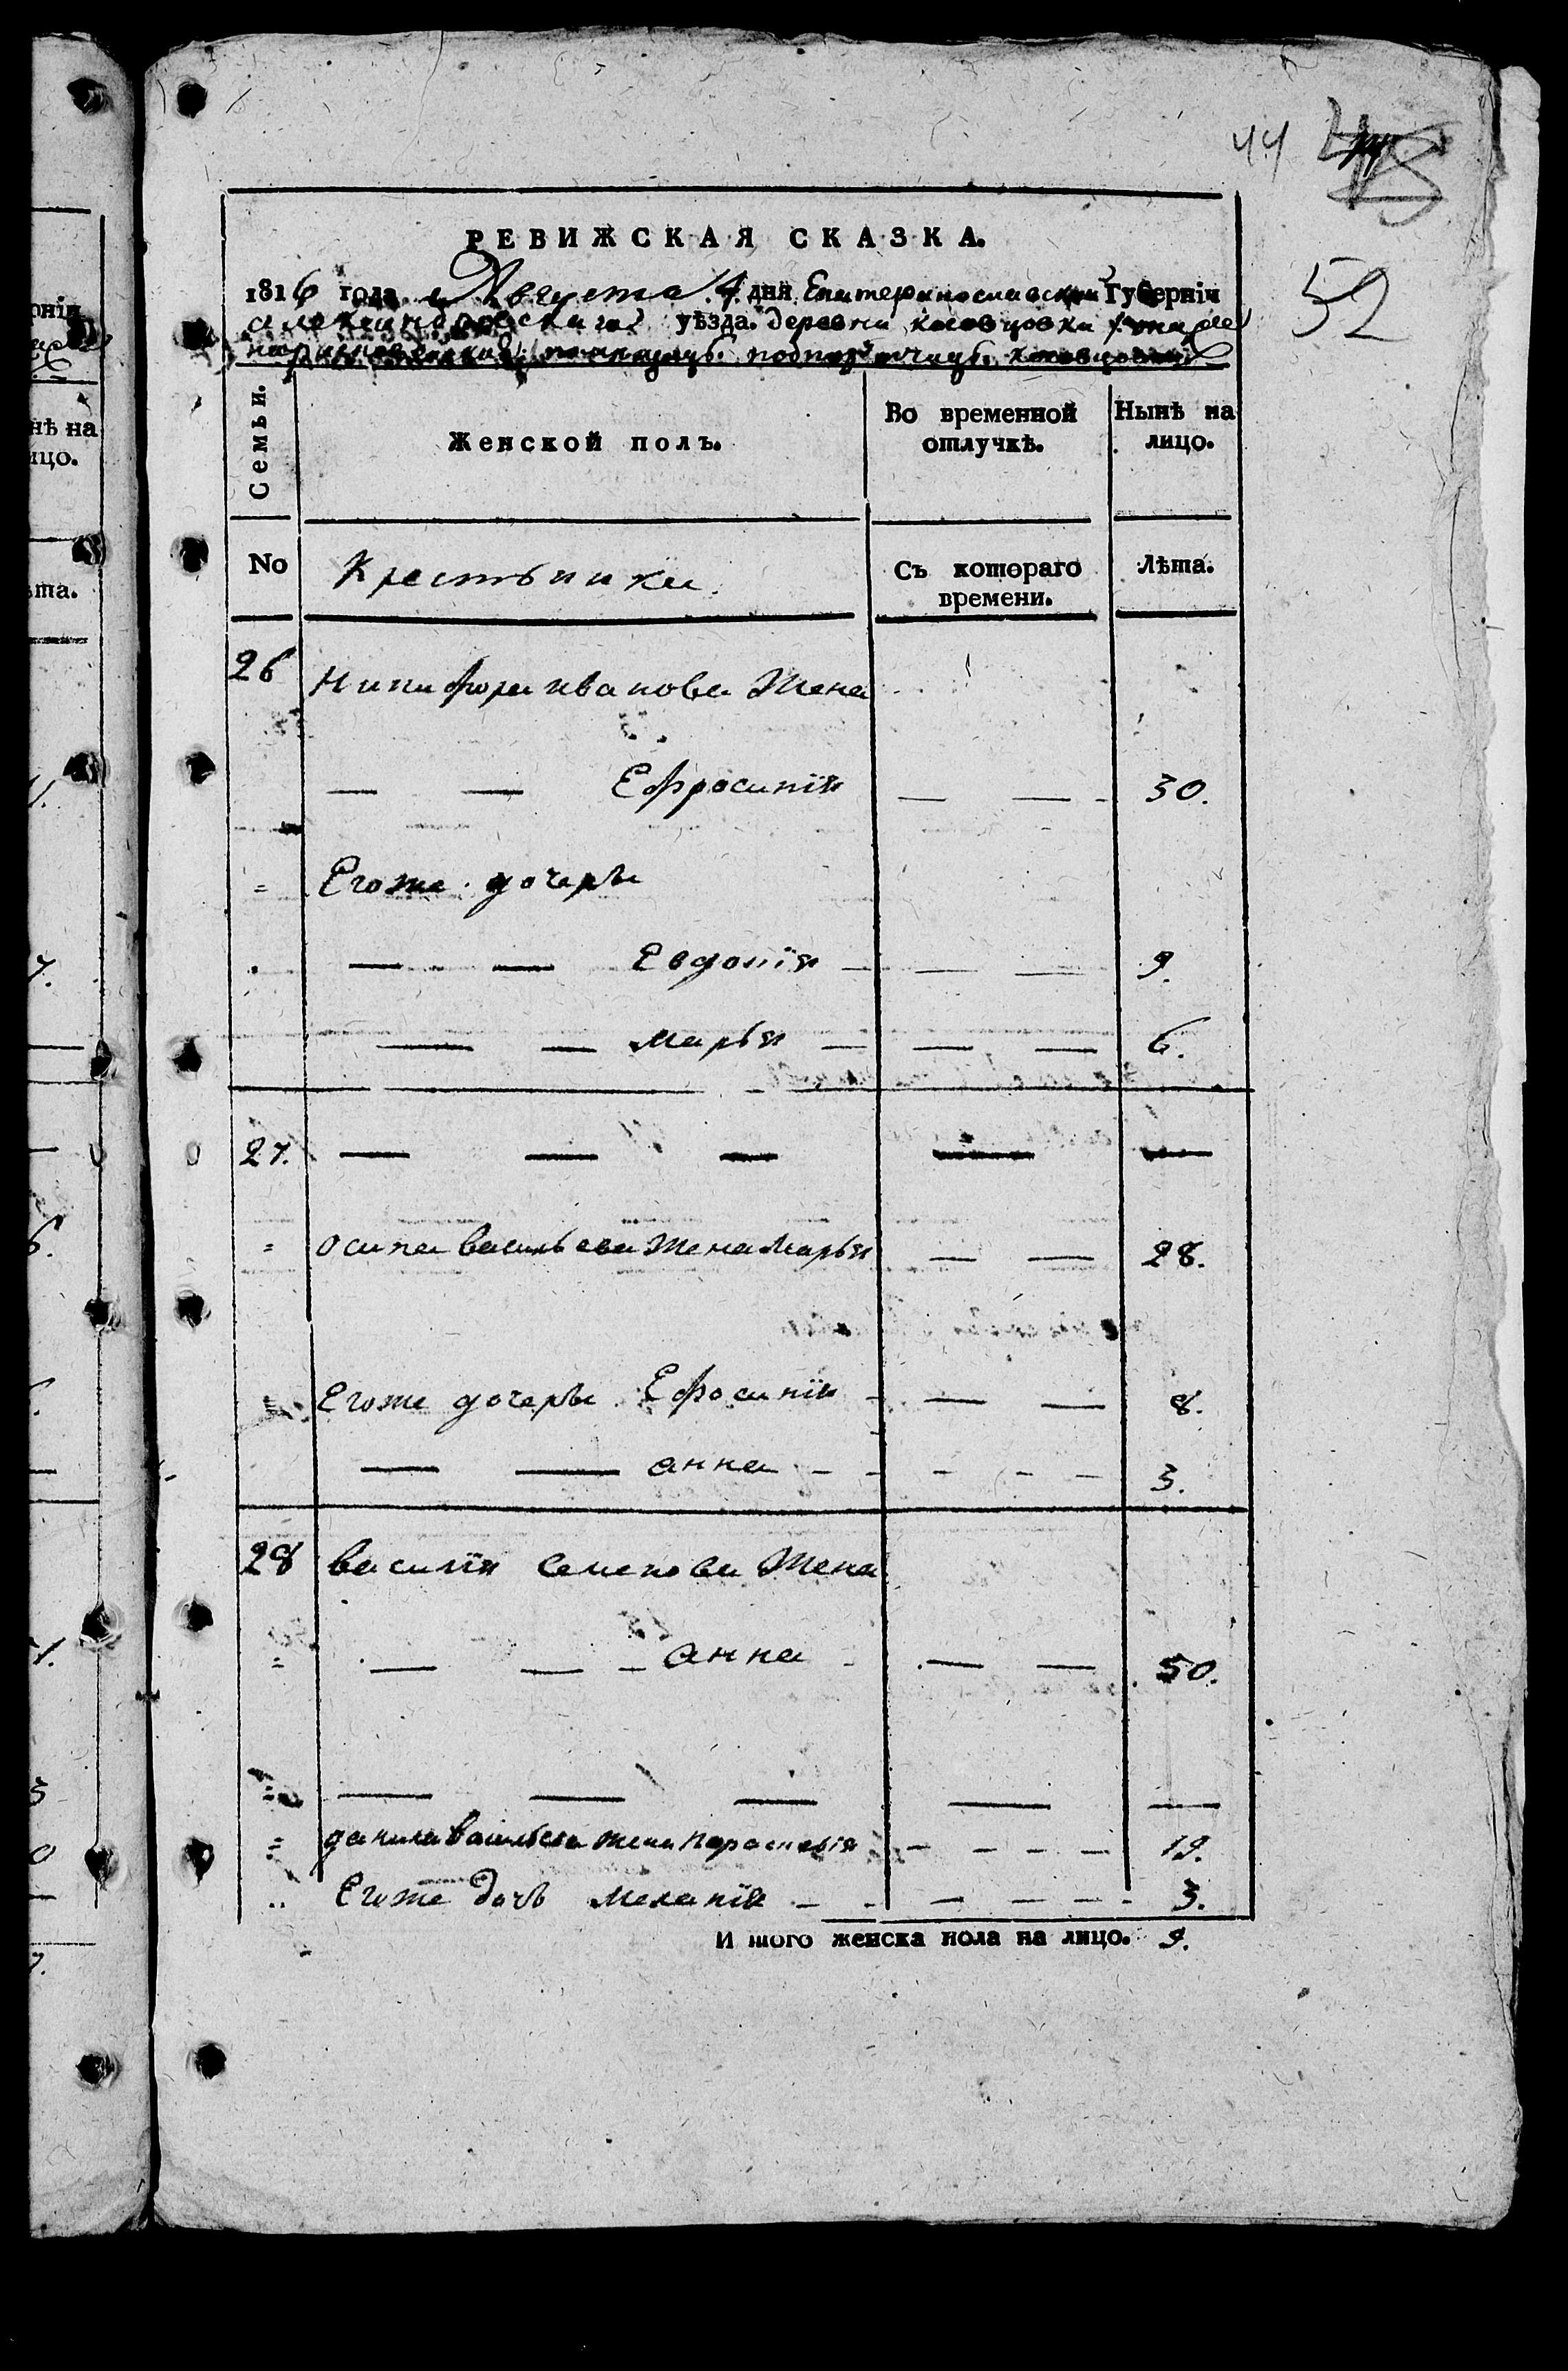 44
52
РЕВИЖСКАЯ СКАЗКА.
1816 года Августа 4 дня Екатеринославской Губерніи
александровскаго уѣзда. деревни косовцовки
Семьи.
Женской полъ.
Во временной отлучкѣ.
Нынѣ на лицо.
No
Крестьянки.
Съ котораго времени.
Лѣта.
26 Никифора иванова Жена
— — Ефросинія — — 30.
= Егоже дочери
— — Евдокія — — — 9.
— — марья — — — 6.
27. — — — — —
= осипа васильева Жена марья — — 28.
Егоже дочери Ефросинія — — 8.
— — анна — — — — — 3.
28 василія Семенова Жена
= — — — анна — — — 50.
= — — — — —
= данила васильева жена параскевія — — — — 19.
Егоже дочь меланія — — — — — 3.
И того женска пола на лицо. 9.